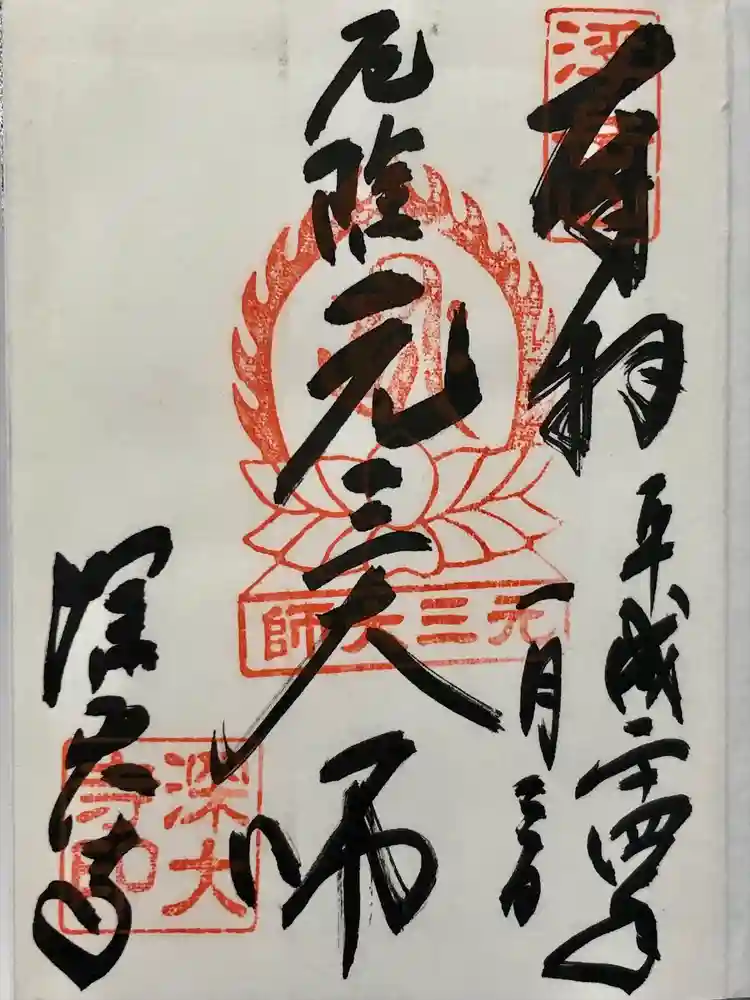 奉拝
平成二十四年
一月三日
厄除元三大師
深大寺
元三大師
深大
寺印